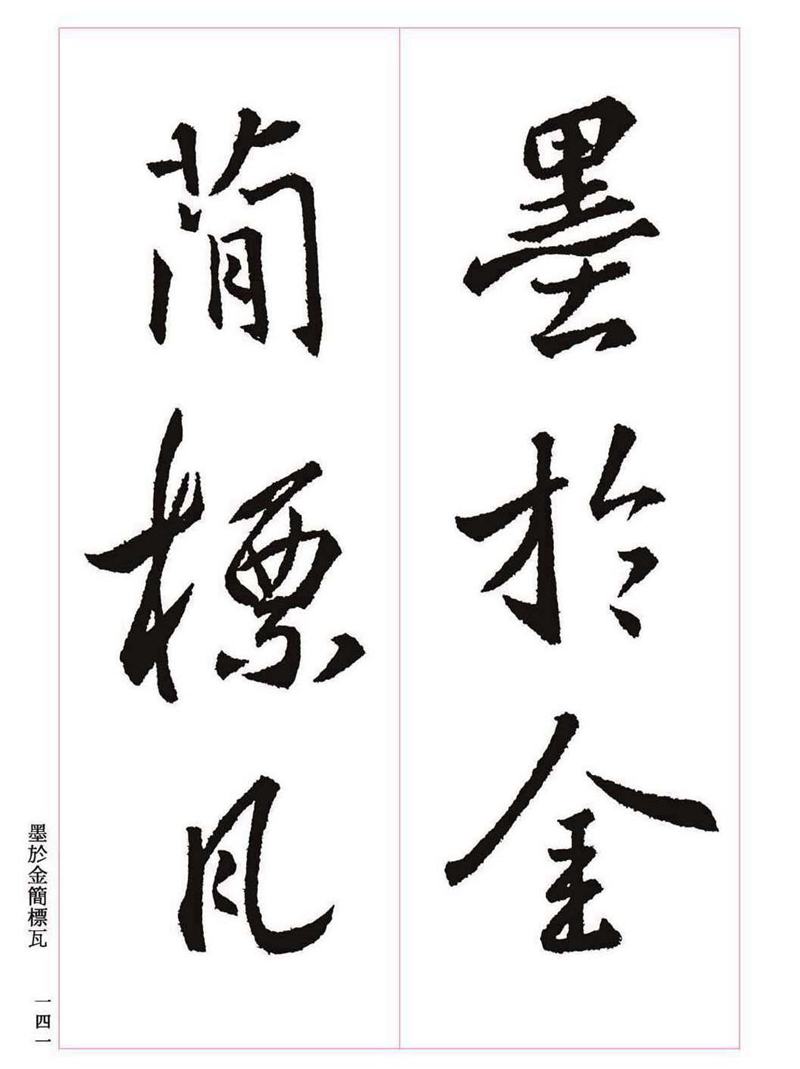 墨於金
簡標瓦
墨於金簡標瓦
一四一